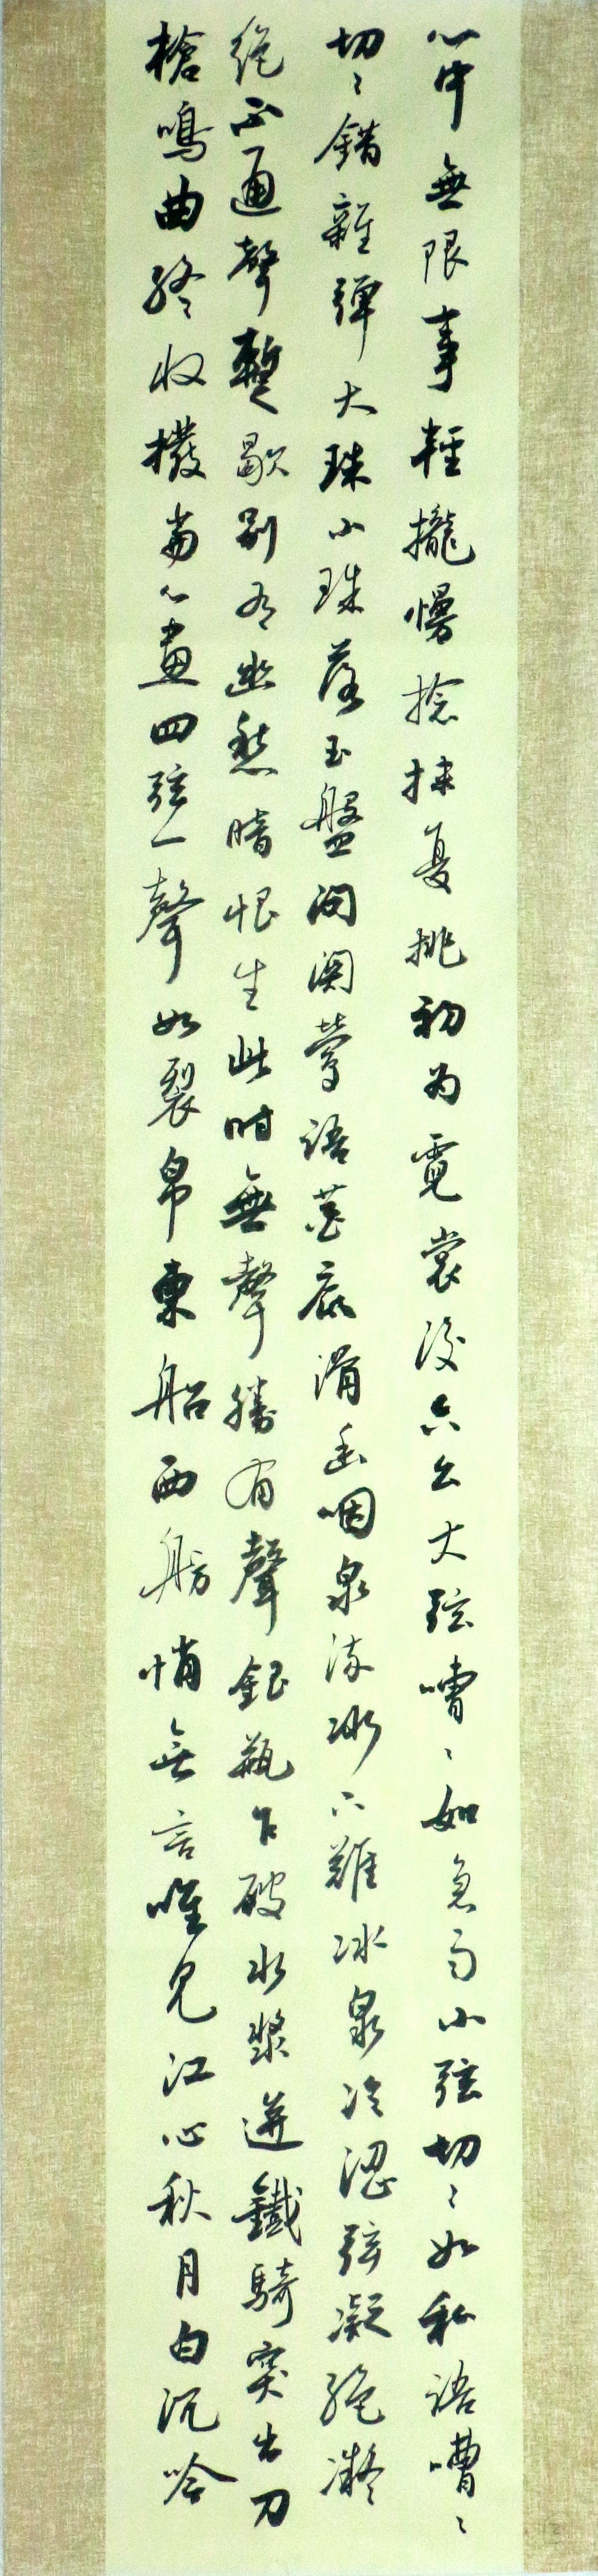 心中無限事輕攏慢捻抹复挑初为霓裳後六幺大弦嘈〻如急雨小弦切〻如私語嘈〻
切〻錯雜彈大珠小珠落玉盤間關鶯語花底滑幽咽泉流冰下難冰泉冷澀弦凝絕凝
絕不通聲暫歇別有幽愁暗恨生此時無聲勝有聲銀瓶乍破水漿迸鐵騎突出刀
槍鳴曲終收撥當心畫四弦一聲如裂帛東船西舫悄無言唯見江心秋月白沉吟